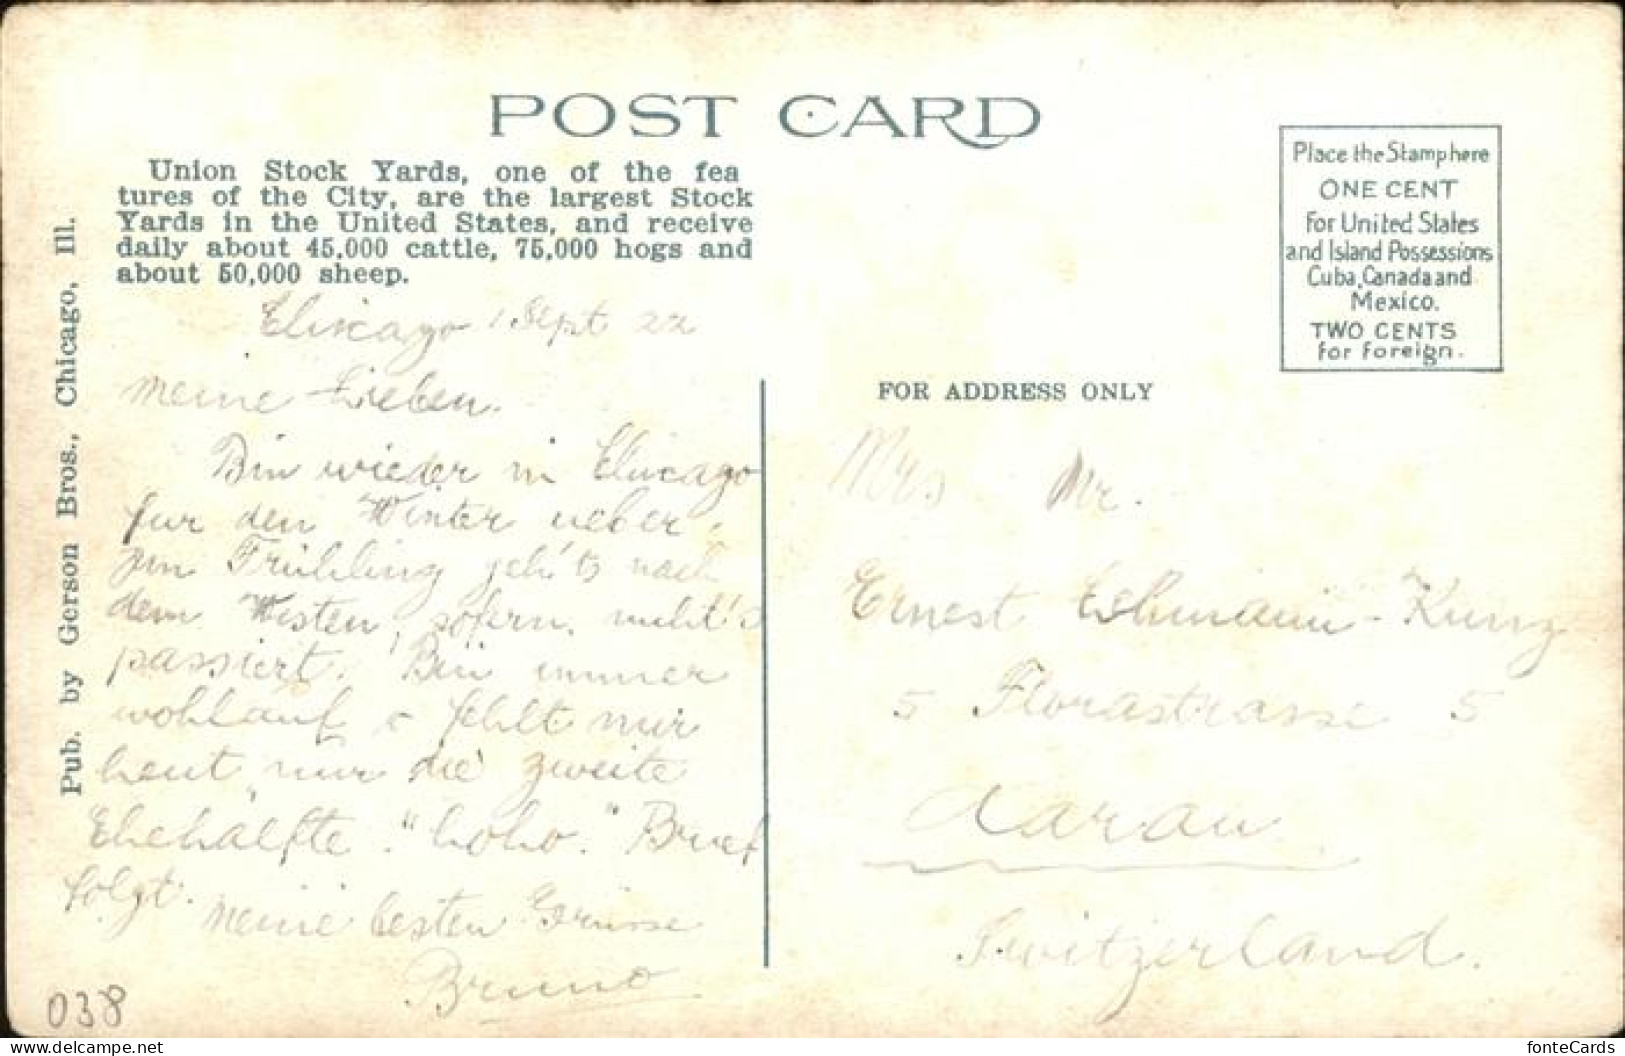 POST CARD
Union Stock Yards, one of the fea
tures of the City, are the largest Stock
Yards in the United States, and receive
daily about 45,000 cattle, 75,000 hogs and
about 50,000 sheep.
Pub. by Gerson Bros., Chicago, Ill.
Place the Stamp here
ONE CENT
For United States
and Island Possessions
Cuba, Canada and
Mexico.
TWO CENTS
for Foreign.
FOR ADDRESS ONLY
Chicago 1 Sept 22
Meine Lieben.
Bin wieder in Chicago
fur den Winter ueber,
zum Frühling geht's nach
dem Westen, sofern nicht's
passiert. Bin immer
wohlauf & fehlt mir
heut nur die zweite
Ehehälfte. "hoho." Brief
folgt. Meine besten Grüsse
Bruno
Mrs Mr.
Ernest Lehmann-Kunz
5 Florastrasse 5
Aarau
Switzerland.
038
fonteCards